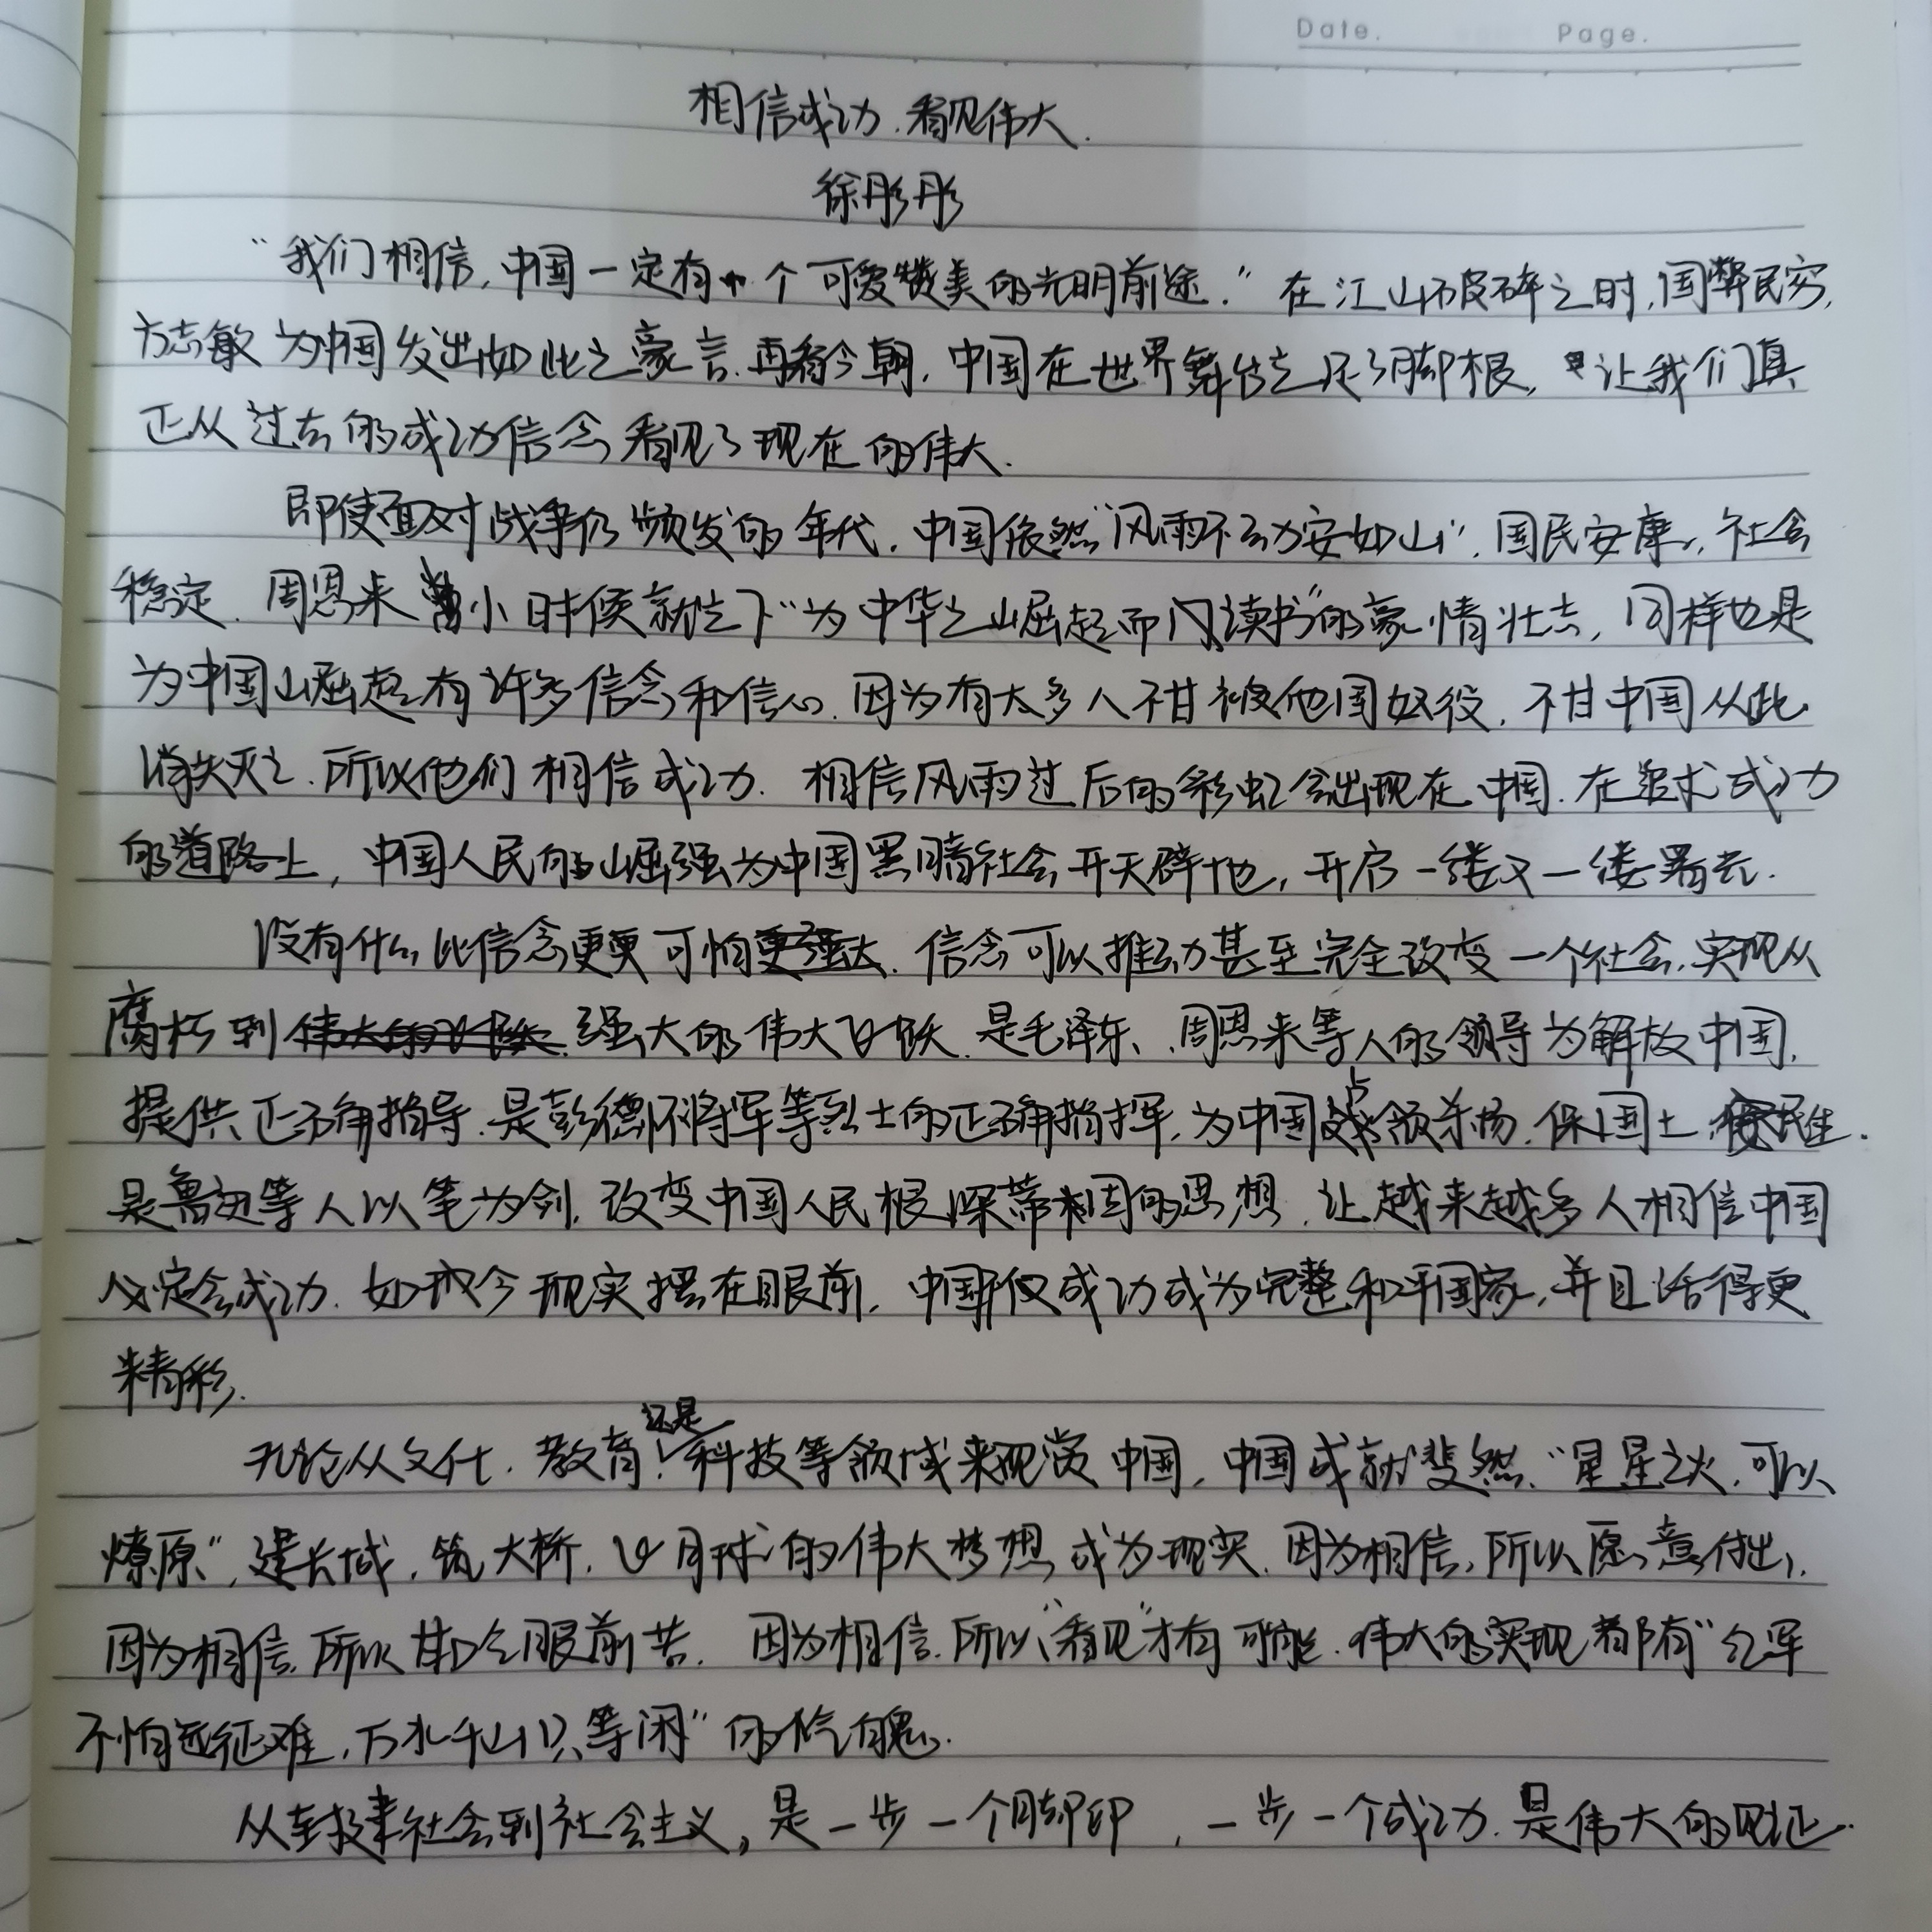 Date. Page.
相信成功.看见伟大.
徐彤彤
“我们相信,中国一定有个可爱赞美的光明前途.”在江山破碎之时,国弊民穷,
方志敏为中国发出如此之豪言.再看今朝,中国在世界舞台立足了脚根,让我们真
正从过去的成功信念看见了现在的伟大.
即使面对战争仍频发的年代.中国依然“风雨不动安如山”.国民安康,社会
稳定.周恩来小时候就立下“为中华之崛起而读书”的豪情壮志,同样也是
为中国崛起有许多信念和信心.因为有太多人不甘被他国奴役.不甘中国从此
消失灭亡.所以他们相信成功.相信风雨过后的彩虹会出现在中国.在追求成功
的道路上,中国人民的崛强为中国黑暗社会开天辟地,开启一缕又一缕曙光.
没有什么比信念更可怕.信念可以推动甚至完全改变一个社会.实现从
腐朽到强大的伟大飞跃.是毛泽东、周恩来等人的领导为解放中国,
提供正确指导.是彭德怀将军等烈士的正确指挥,为中国占领杀场.保国土,民生.
是鲁迅等人以笔为剑.改变中国人民根深蒂固的思想.让越来越多人相信中国
必定会成功.如今现实摆在眼前,中国不仅成功成为完整和平国家,并且活得更
精彩.
无论从文化.教育还是科技等领域来观赏中国,中国成就斐然.“星星之火,可以
燎原”,建长城,筑大桥,飞月球的伟大梦想成为现实.因为相信,所以愿意付出,
因为相信,所以甘心眼前苦.因为相信.所以“看见”才有可能.伟大的实现都有“红军
不怕远征难,万水千山只等闲”的气魄.
从封建社会到社会主义,是一步一个脚印,一步一个成功.是伟大的见证.